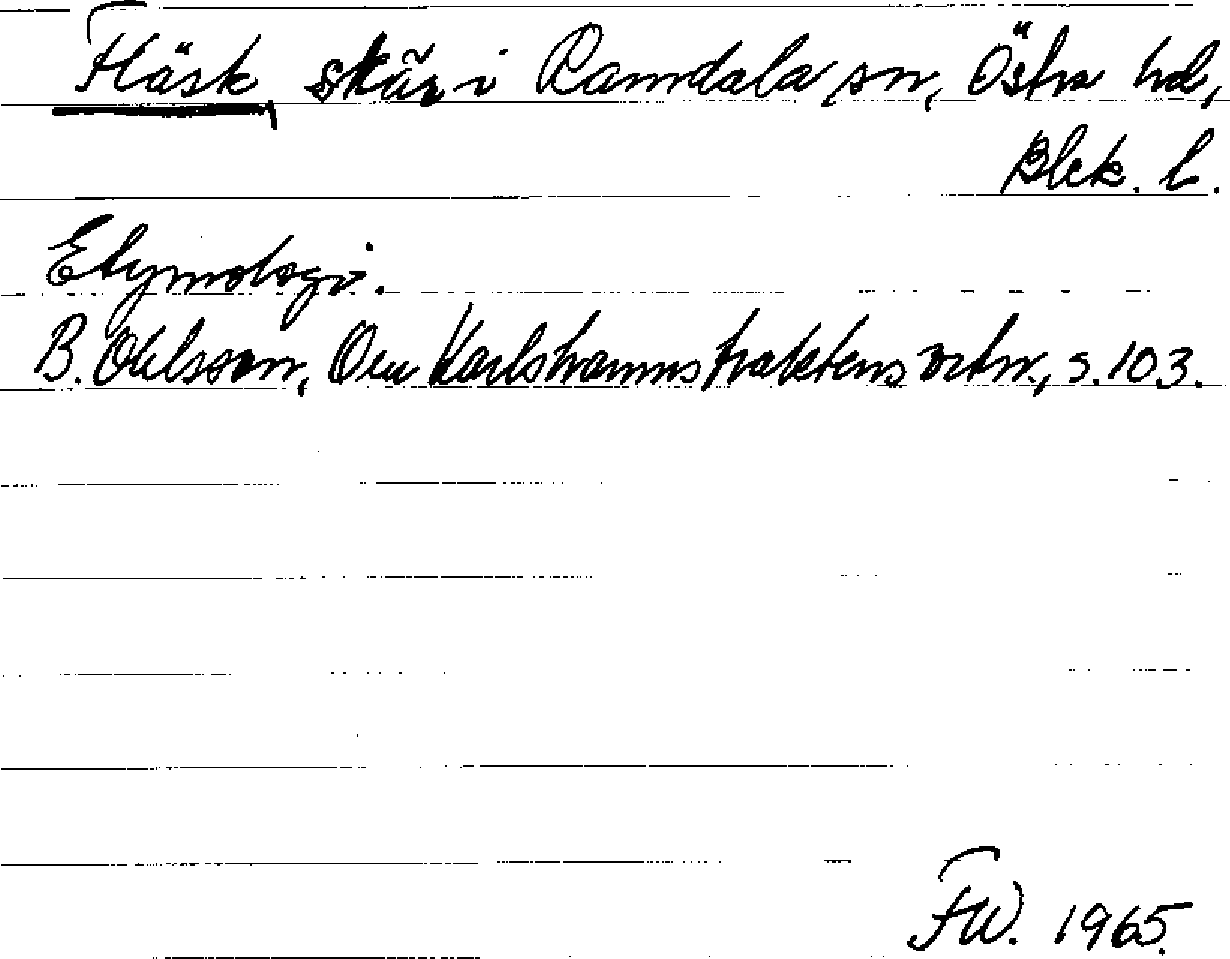 Fläsk, skär i Ramdala sn, Östra hd,
Blek. l.
Etymologi.
B. Ohlsson, Om Karlshamnstraktens ortn., s. 103.
FW. 1965.